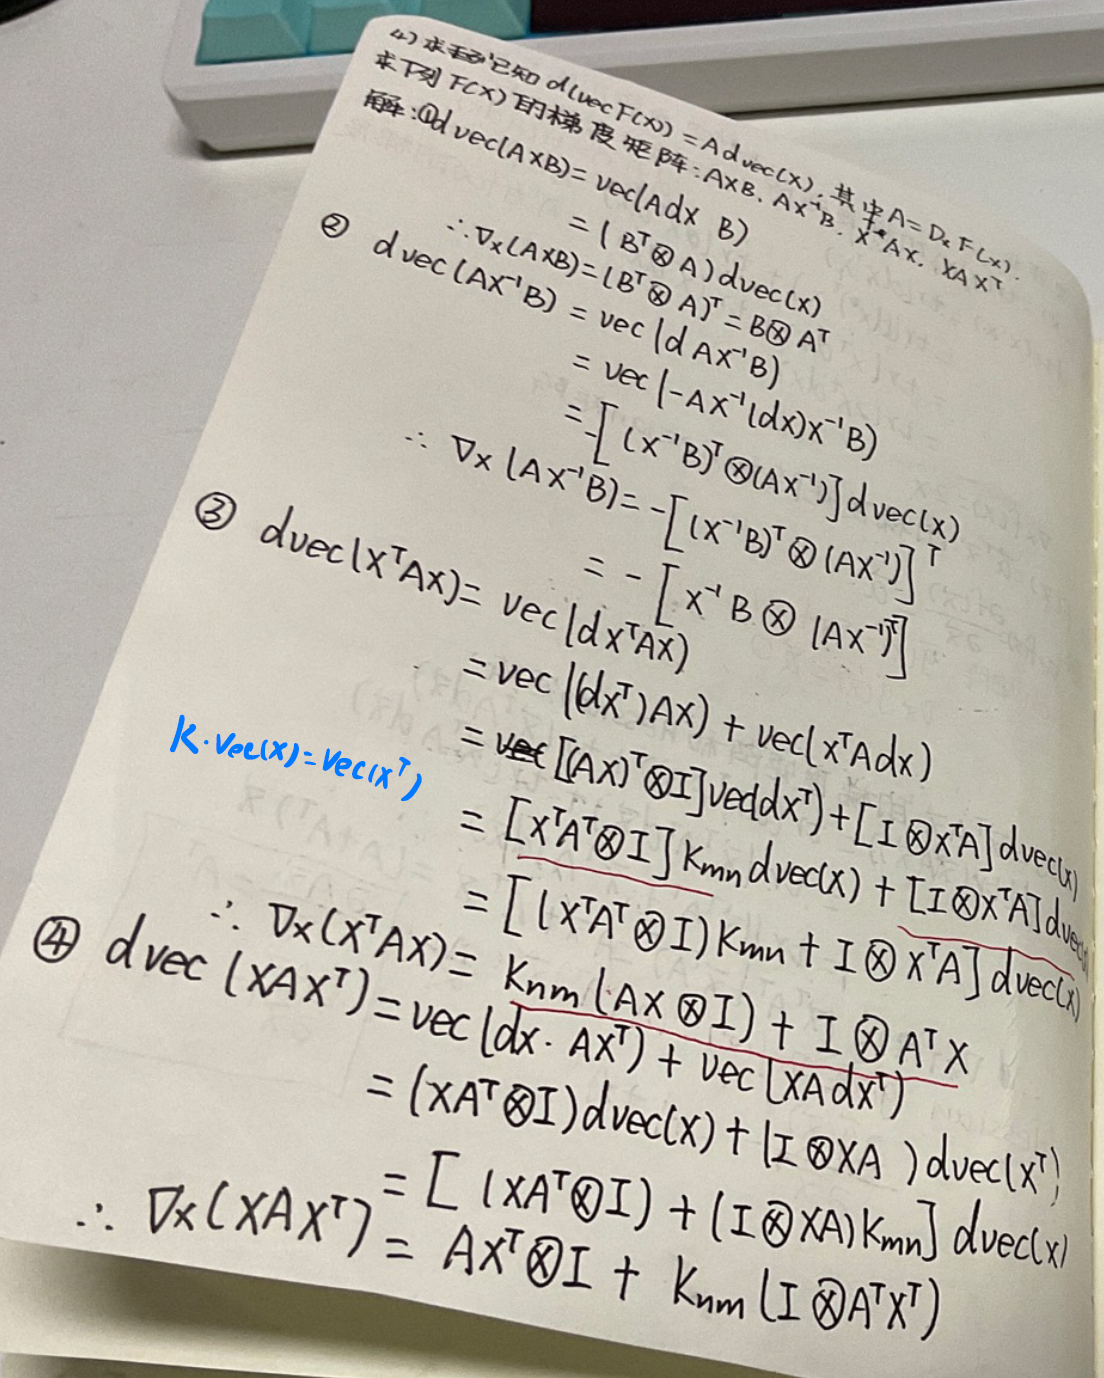 4) 求 已知 d(vec F(x)) = A dvec(x), 其中 A = Dₓ F(x).
求下列 F(X) 的梯度矩阵: AXB、AX⁻¹B、XᵀAX、XAXᵀ
解: ① dvec(AXB) = vec(AdX B)
= (Bᵀ⊗A) dvec(x)
∴ ∇x(AXB) = (Bᵀ⊗A)ᵀ = B⊗Aᵀ
② dvec(AX⁻¹B) = vec(dAX⁻¹B)
= vec(-AX⁻¹(dx)X⁻¹B)
= -[(X⁻¹B)ᵀ⊗(AX⁻¹)] dvec(x)
∴ ∇x(AX⁻¹B) = -[(X⁻¹B)ᵀ⊗(AX⁻¹)]ᵀ
= -[X⁻¹B⊗(AX⁻¹)ᵀ]
③ dvec(XᵀAX) = vec(dXᵀAX)
= vec((dXᵀ)AX) + vec(XᵀAdx)
= [(AX)ᵀ⊗I]vec(dXᵀ) + [I⊗XᵀA]dvec(x)
K·vec(X)=vec(Xᵀ)
= [XᵀAᵀ⊗I]Kmn dvec(x) + [I⊗XᵀA]dvec(x)
= [(XᵀAᵀ⊗I)Kmn + I⊗XᵀA] dvec(x)
∴ ∇x(XᵀAX) = Knm(AX⊗I) + I⊗AᵀX
④ dvec(XAXᵀ) = vec(dx·AXᵀ) + vec(XAdXᵀ)
= (XAᵀ⊗I)dvec(x) + (I⊗XA)dvec(Xᵀ)
= [(XAᵀ⊗I) + (I⊗XA)Kmn] dvec(x)
∴ ∇x(XAXᵀ) = AXᵀ⊗I + Knm(I⊗AᵀXᵀ)